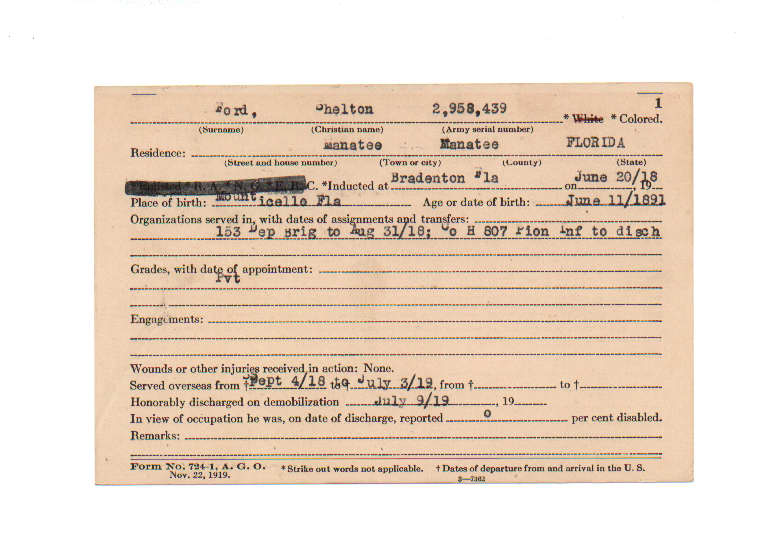 1
Ford, Shelton 2,958,439 * White * Colored.
(Surname) (Christian name) (Army serial number)
Residence: Manatee Manatee FLORIDA
(Street and house number) (Town or city) (County) (State)
*Enlisted * R. A. * N. G. * E. R. C. *Inducted at Bradenton Fla on June 20/18, 19
Place of birth: Mount icello Fla Age or date of birth: June 11/1891
Organizations served in, with dates of assignments and transfers:
153 Dep Brig to Aug 31/18; Co H 807 Pion Inf to disch
Grades, with date of appointment:
Pvt
Engagements:
Wounds or other injuries received in action: None.
Served overseas from † Sept 4/18 to † July 3/19, from † to †
Honorably discharged on demobilization July 9/19, 19
In view of occupation he was, on date of discharge, reported 0 per cent disabled.
Remarks:
Form No. 724-1, A. G. O. * Strike out words not applicable. † Dates of departure from and arrival in the U. S.
Nov. 22, 1919. 3—7362